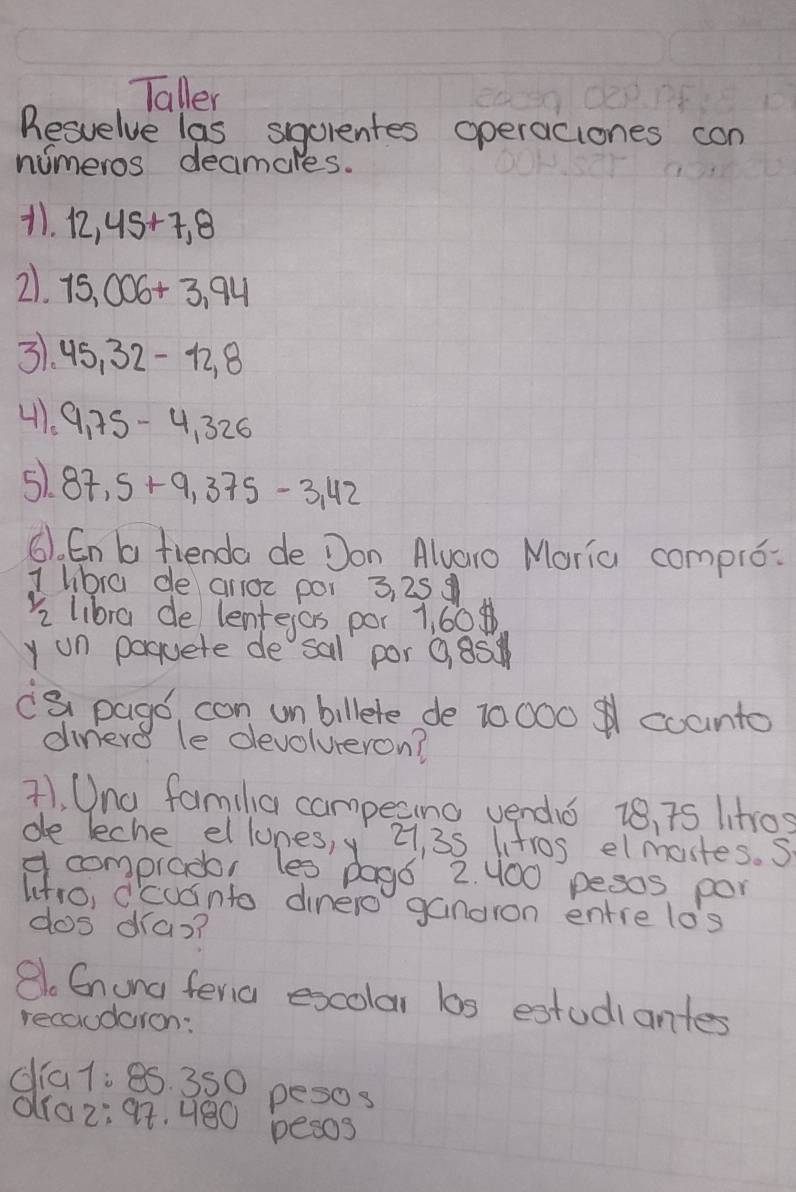 Taller
Resuelve las siguientes operaciones con
números decimales.
1). 12,45+7,8
2). 15,006+ 3,94
3). 45,32 - 12,8
4). 9,75 - 4,326
5). 87,5 + 9,375 - 3,42
6). En la tienda de Don Alvaro María compró:
1 libra de arroz por 3,25 $
1/2 libra de lentejas por 1,60$
y un paquete de sal por 0,85$
¿Si pagó, con un billete de 10.000 $ cuanto
dinero le devolvieron?
7). Una familia campesina vendió 18,75 litros
de leche el lunes, y 21,35 litros el martes. S
el comprador les pagó 2.400 pesos por
litro, ¿cuánto dinero ganaron entre lo's
dos días?
8). En una feria escolar los estudiantes
recaudaron:
día 1: 85.350 pesos
día 2: 97.480 pesos